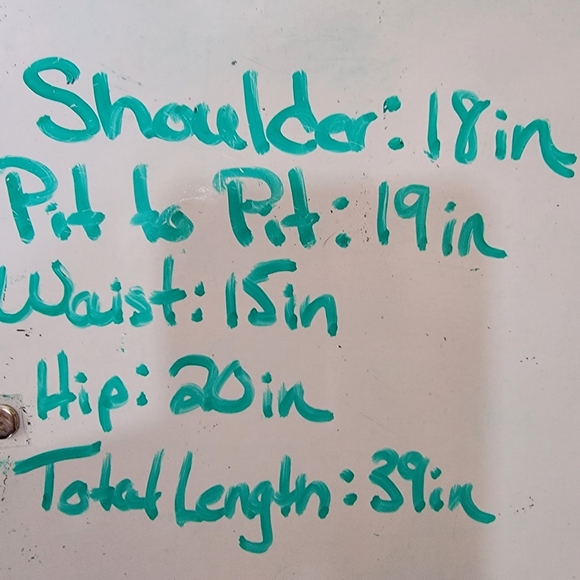 Shoulder: 18in
Pit to Pit: 19in
Waist: 15in
Hip: 20in
Total Length: 39in